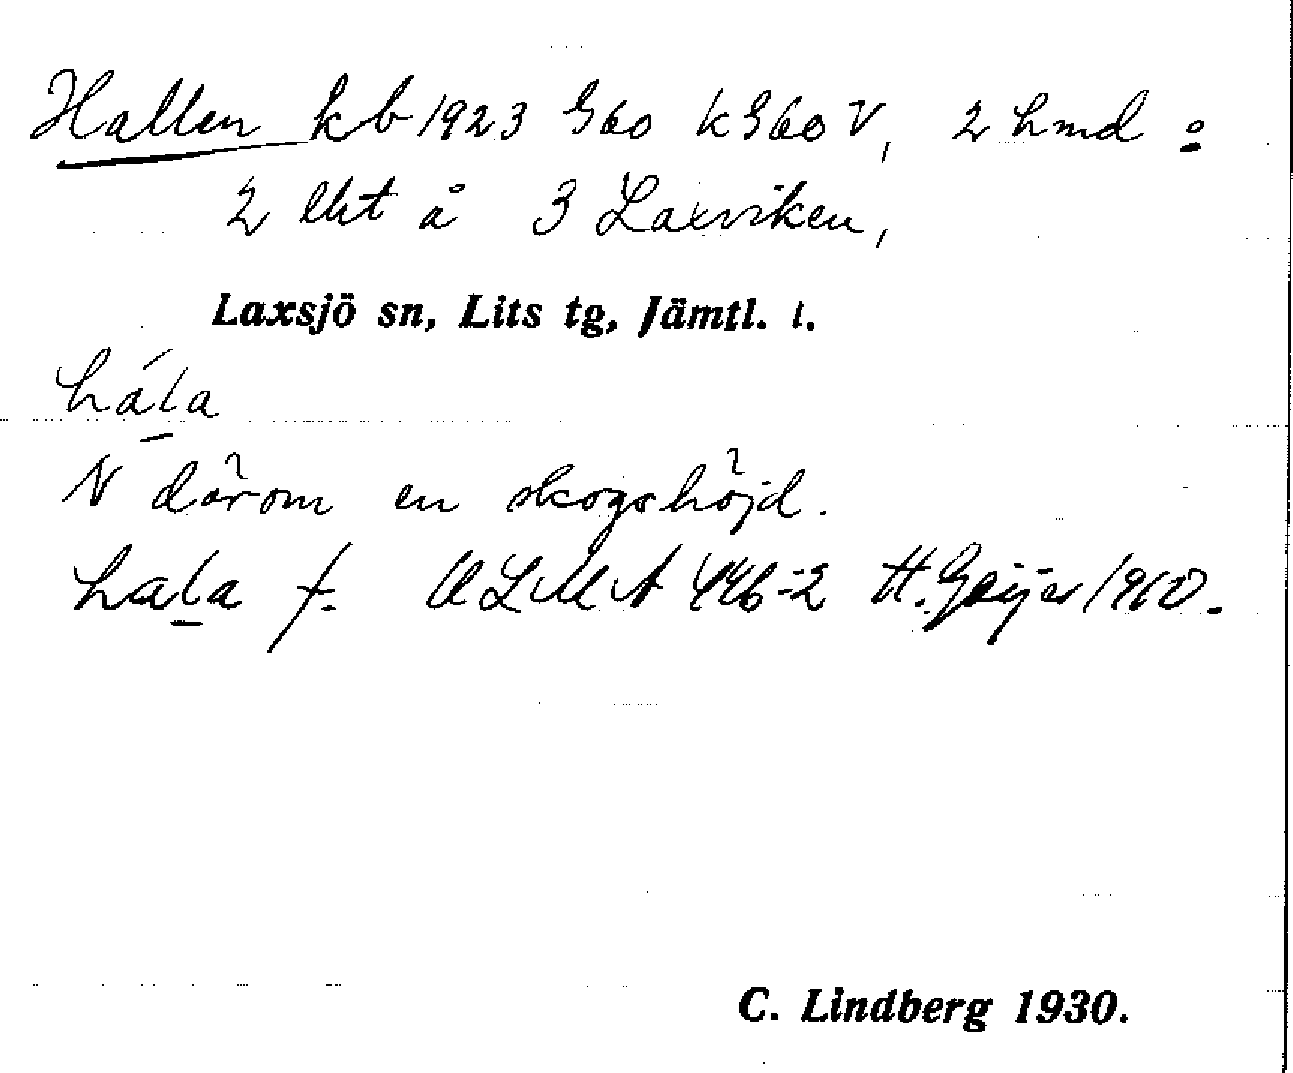 Hallen kb 1923 G60 k G60 V, 2 hmd o
2 lht å 3 Laxviken,
Laxsjö sn, Lits tg, Jämtl. l.
hála
N därom en skogshöjd.
hala f. ULMA 446:2 H. Geijer 1960.
C. Lindberg 1930.